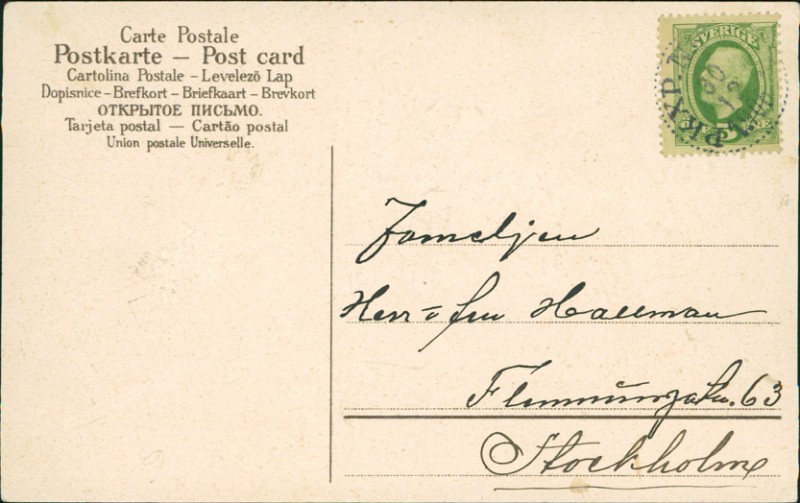 Carte Postale
Postkarte — Post card
Cartolina Postale – Levelező Lap
Dopisnice – Brefkort – Briefkaart – Brevkort
ОТКРЫТОЕ ПИСЬМО.
Tarjeta postal — Cartão postal
Union postale Universelle.
SVERIGE
PKXP. N
30
12
5
Familjen
Herr o fru Hallman
63
Stockholm